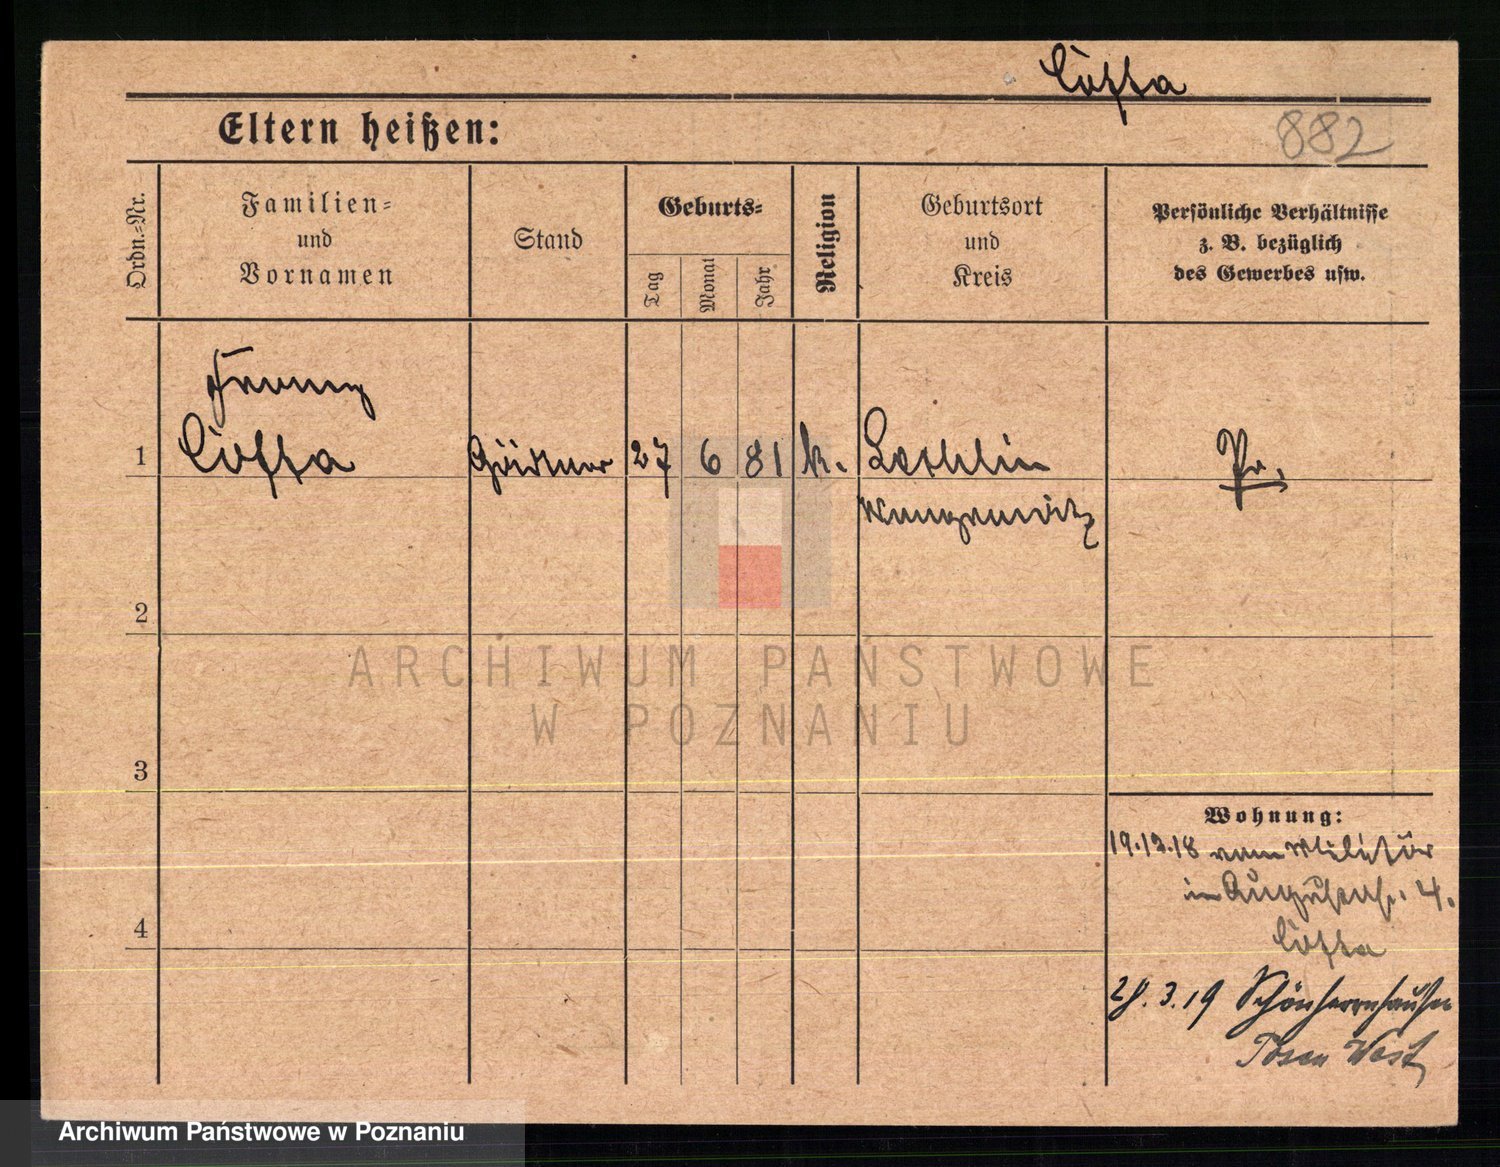 882
Eltern heißen:
Ordn.-Nr.
Familien-
und
Vornamen
Stand
Geburts-
Tag
Monat
Jahr
Religion
Geburtsort
und
Kreis
Persönliche Verhältnisse
z. B. bezüglich
des Gewerbes usw.
Franz
1
Gärtner
27
6
81
k.
Pr.
Wongrowitz
2
3
4
Wohnung:
19.12.18 vom Militär
in Augustastr. 4.
28.3.19
Posen West
ARCHIWUM PAŃSTWOWE
W POZNANIU
Archiwum Państwowe w Poznaniu